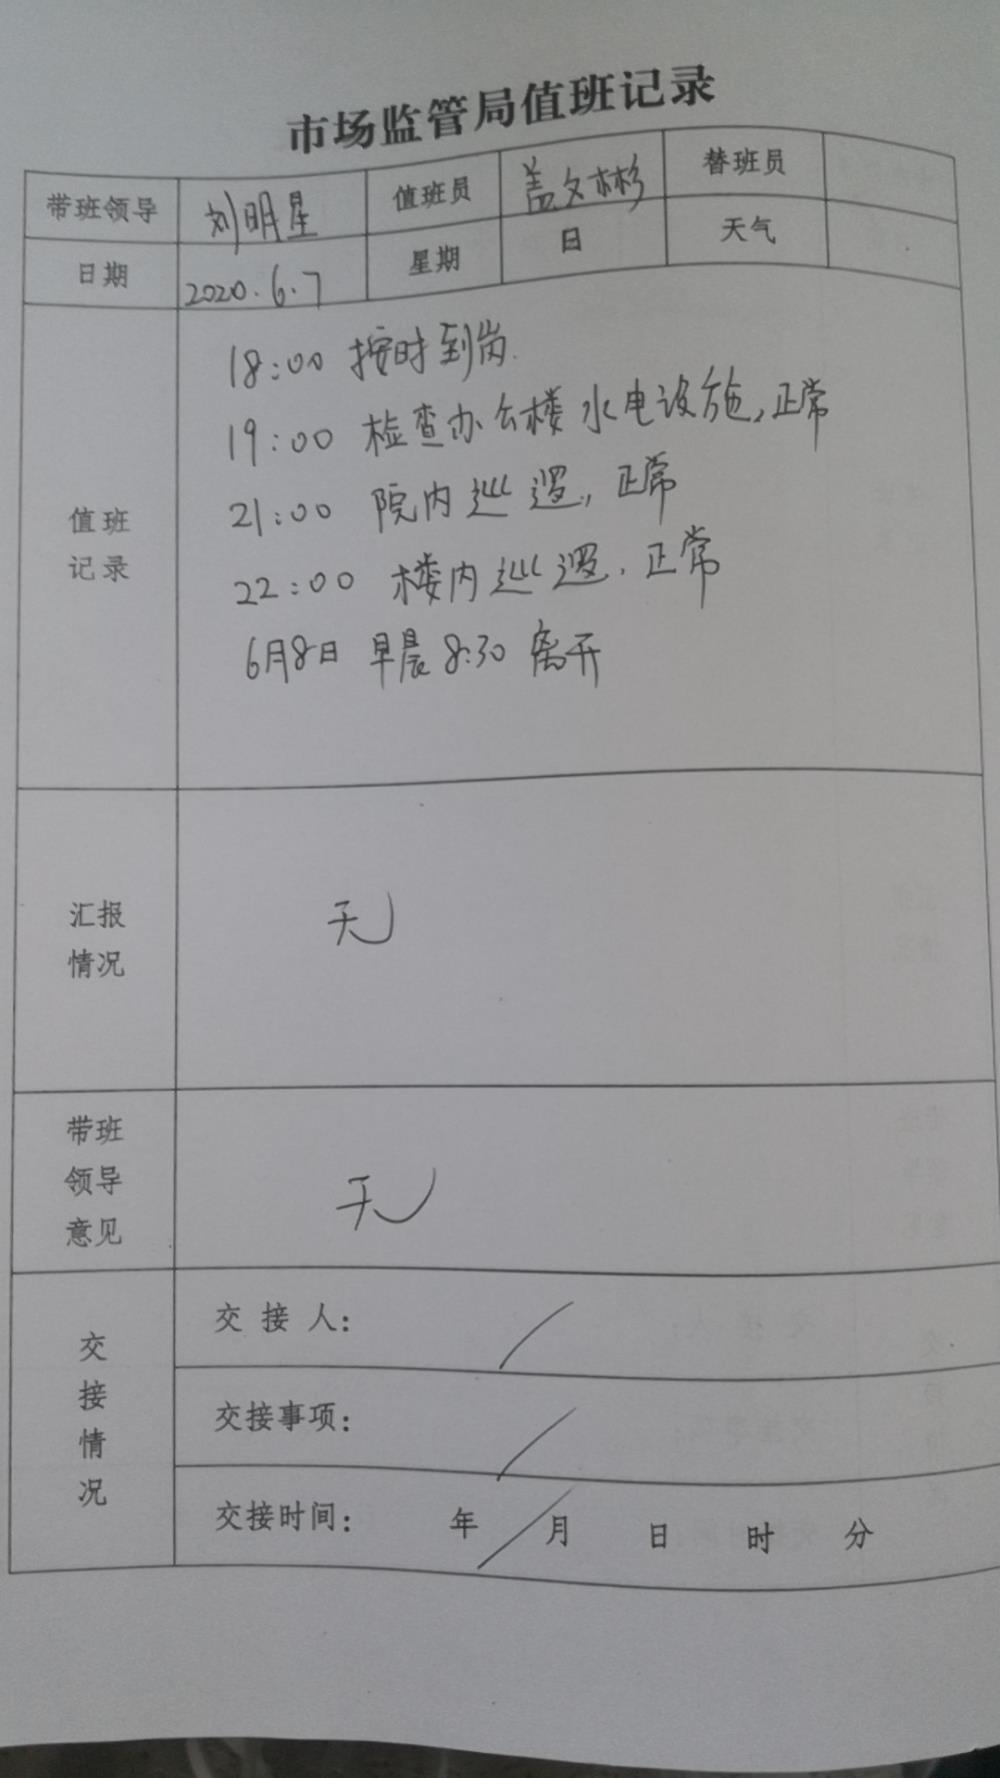 市场监管局值班记录
带班领导 刘明星 值班员 盖文彬 替班员
日期 2020.6.7 星期 日 天气
值班
记录
18:00 按时到岗.
19:00 检查办公楼水电设施,正常
21:00 院内巡逻,正常
22:00 楼内巡逻,正常
6月8日 早晨8:30 离开
汇报
情况
无
带班
领导
意见
无
交
接
情
况
交 接 人:
交接事项:
交接时间: 年 月 日 时 分